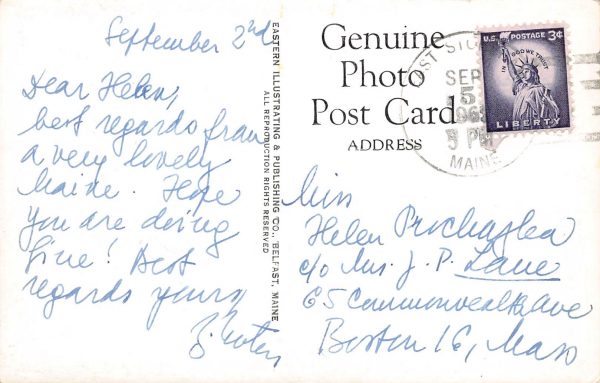 September 2nd
Dear Helen,
best regards from
a very lovely
Maine. Hope
you are doing
fine! Best
regards yours,
EASTERN ILLUSTRATING & PUBLISHING CO., BELFAST, MAINE
ALL REPRODUCTION RIGHTS RESERVED
Genuine
Photo
Post Card
ADDRESS
U.S. POSTAGE 3¢
IN GOD WE TRUST
LIBERTY
SEP
5
5 PM
MAINE
Miss
Helen Prochazka
c/o Mrs. J. P. Lane
65 Commonwealth Ave
Boston 16, Mass